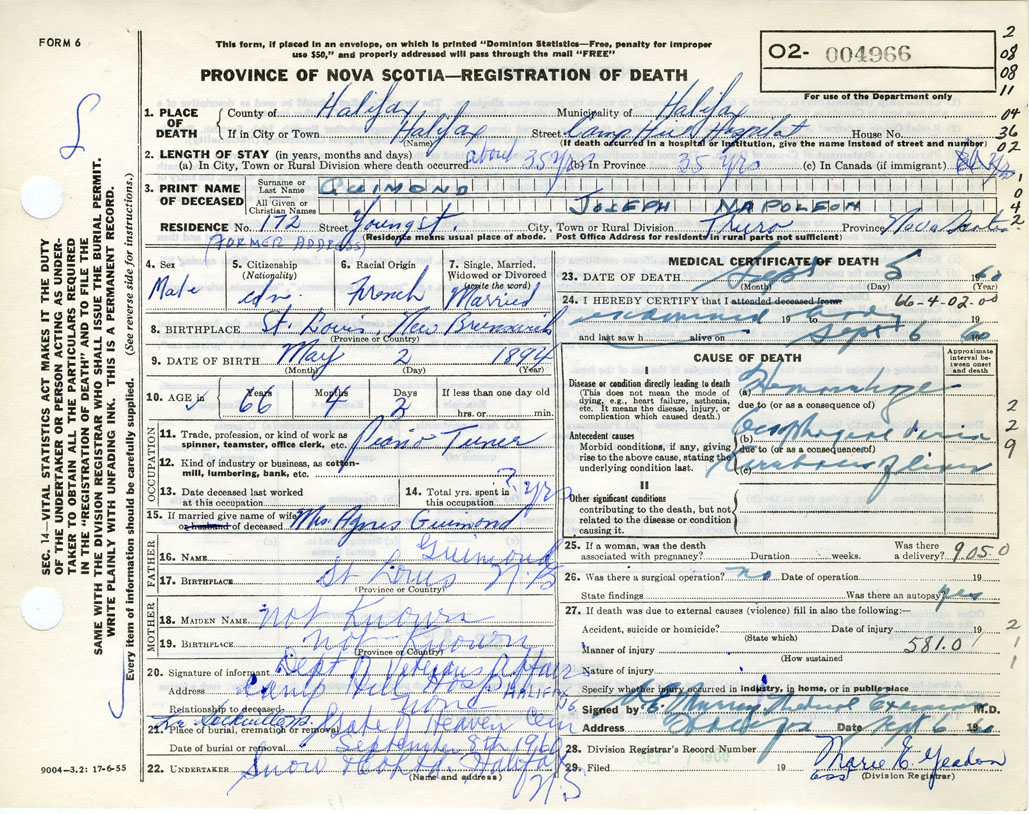 FORM 6
This form, if placed in an envelope, on which is printed "Dominion Statistics—Free, penalty for improper
use $50," and properly addressed will pass through the mail "FREE"
PROVINCE OF NOVA SCOTIA—REGISTRATION OF DEATH
O2- 004966
For use of the Department only
2
08
08
11
04
36
02
SEC. 14—VITAL STATISTICS ACT MAKES IT THE DUTY
OF THE UNDERTAKER OR PERSON ACTING AS UNDER-
TAKER TO OBTAIN ALL THE PARTICULARS REQUIRED
IN THE "REGISTRATION OF DEATH" AND FILE THE
SAME WITH THE DIVISION REGISTRAR WHO SHALL ISSUE THE BURIAL PERMIT.
WRITE PLAINLY WITH UNFADING INK. THIS IS A PERMANENT RECORD.
Every item of information should be carefully supplied. (See reverse side for instructions.)
1. PLACE OF DEATH County of Halifax Municipality of Halifax
If in City or Town Halifax Street Camp Hill Hospital House No.
(Name) (If death occurred in a hospital or institution, give the name instead of street and number)
2. LENGTH OF STAY (in years, months and days)
(a) In City, Town or Rural Division where death occurred about 35 yrs (b) In Province 35 yrs (c) In Canada (if immigrant)
3. PRINT NAME OF DECEASED Surname or Last Name GUIMOND
All Given or Christian Names JOSEPH NAPOLEON
RESIDENCE No. 172 Street Young St. City, Town or Rural Division Truro Province Nova Scotia
(FORMER ADDRESS) (Residence means usual place of abode. Post Office Address for residents in rural parts not sufficient)
4. Sex Male
5. Citizenship (Nationality) Cdn.
6. Racial Origin French
7. Single, Married, Widowed or Divorced (write the word) Married
8. BIRTHPLACE St. Louis, New Brunswick
(Province or Country)
9. DATE OF BIRTH May 2 1894
(Month) (Day) (Year)
10. AGE in Years 66 Months 4 Days 2 If less than one day old
hrs. or min.
OCCUPATION
11. Trade, profession, or kind of work as spinner, teamster, office clerk, etc. Piano Tuner
12. Kind of industry or business, as cotton-mill, lumbering, bank, etc.
13. Date deceased last worked at this occupation.
14. Total yrs. spent in this occupation ? yrs
15. If married give name of wife or husband of deceased Mrs Agnes Guimond
FATHER
16. NAME Guimond
17. BIRTHPLACE St Louis N.B
(Province or Country)
MOTHER
18. MAIDEN NAME not Known
19. BIRTHPLACE not Known
(Province or Country)
20. Signature of informant Dept of Veterans Affairs
Address Camp Hill Hosp HALIFAX
Relationship to deceased none
21. Place of burial, cremation or removal Gate of Heaven Cem
Date of burial or removal September 8th 1960
22. UNDERTAKER Snow Halifax N.S
(Name and address)
9004-3.2: 17-6-55
MEDICAL CERTIFICATE OF DEATH
23. DATE OF DEATH Sept 5 1960
(Month) (Day) (Year)
24. I HEREBY CERTIFY that I attended deceased from 66-4-02-00
examined body 19 to 19
and last saw h alive on Sept 6 1960
CAUSE OF DEATH
Approximate interval between onset and death
I
Disease or condition directly leading to death
(This does not mean the mode of dying, e.g., heart failure, asthenia, etc. It means the disease, injury, or complication which caused death.)
(a) Hemorrhage
due to (or as a consequence of)
Antecedent causes
Morbid conditions, if any, giving rise to the above cause, stating the underlying condition last.
(b) Oesophageal
due to (or as a consequence of)
(c) Cirrhosis of liver
II
Other significant conditions
contributing to the death, but not related to the disease or condition causing it.
2
2
9
25. If a woman, was the death associated with pregnancy? Duration weeks. Was there a delivery? 905.0
26. Was there a surgical operation? no Date of operation 19
State findings Was there an autopsy yes
27. If death was due to external causes (violence) fill in also the following:—
Accident, suicide or homicide? Date of injury 19
(State which)
Manner of injury 581.0
(How sustained
Nature of injury
Specify whether injury occurred in industry, in home, or in public place
2
1
1
Signed by Murray Medical Examiner M.D.
Address Halifax Date Sept 6 1960
28. Division Registrar's Record Number
29. Filed 19 Marie E. Yeadon
(Division Registrar)